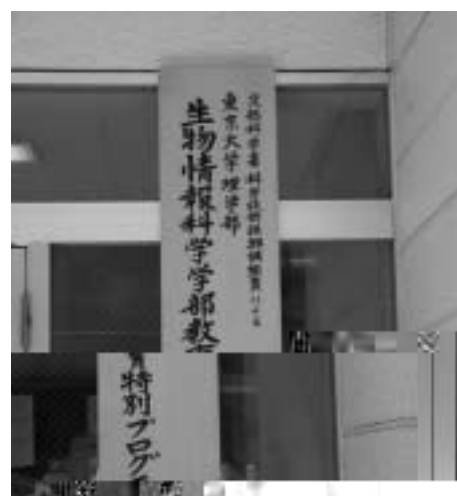 文部科学省科学技術振興調整費による
東京大学理学部
生物情報科学学部教育特別プログ